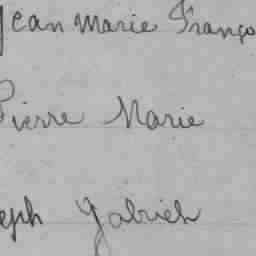 Jean Marie Franço
Pierre Marie
eph Gabrieh